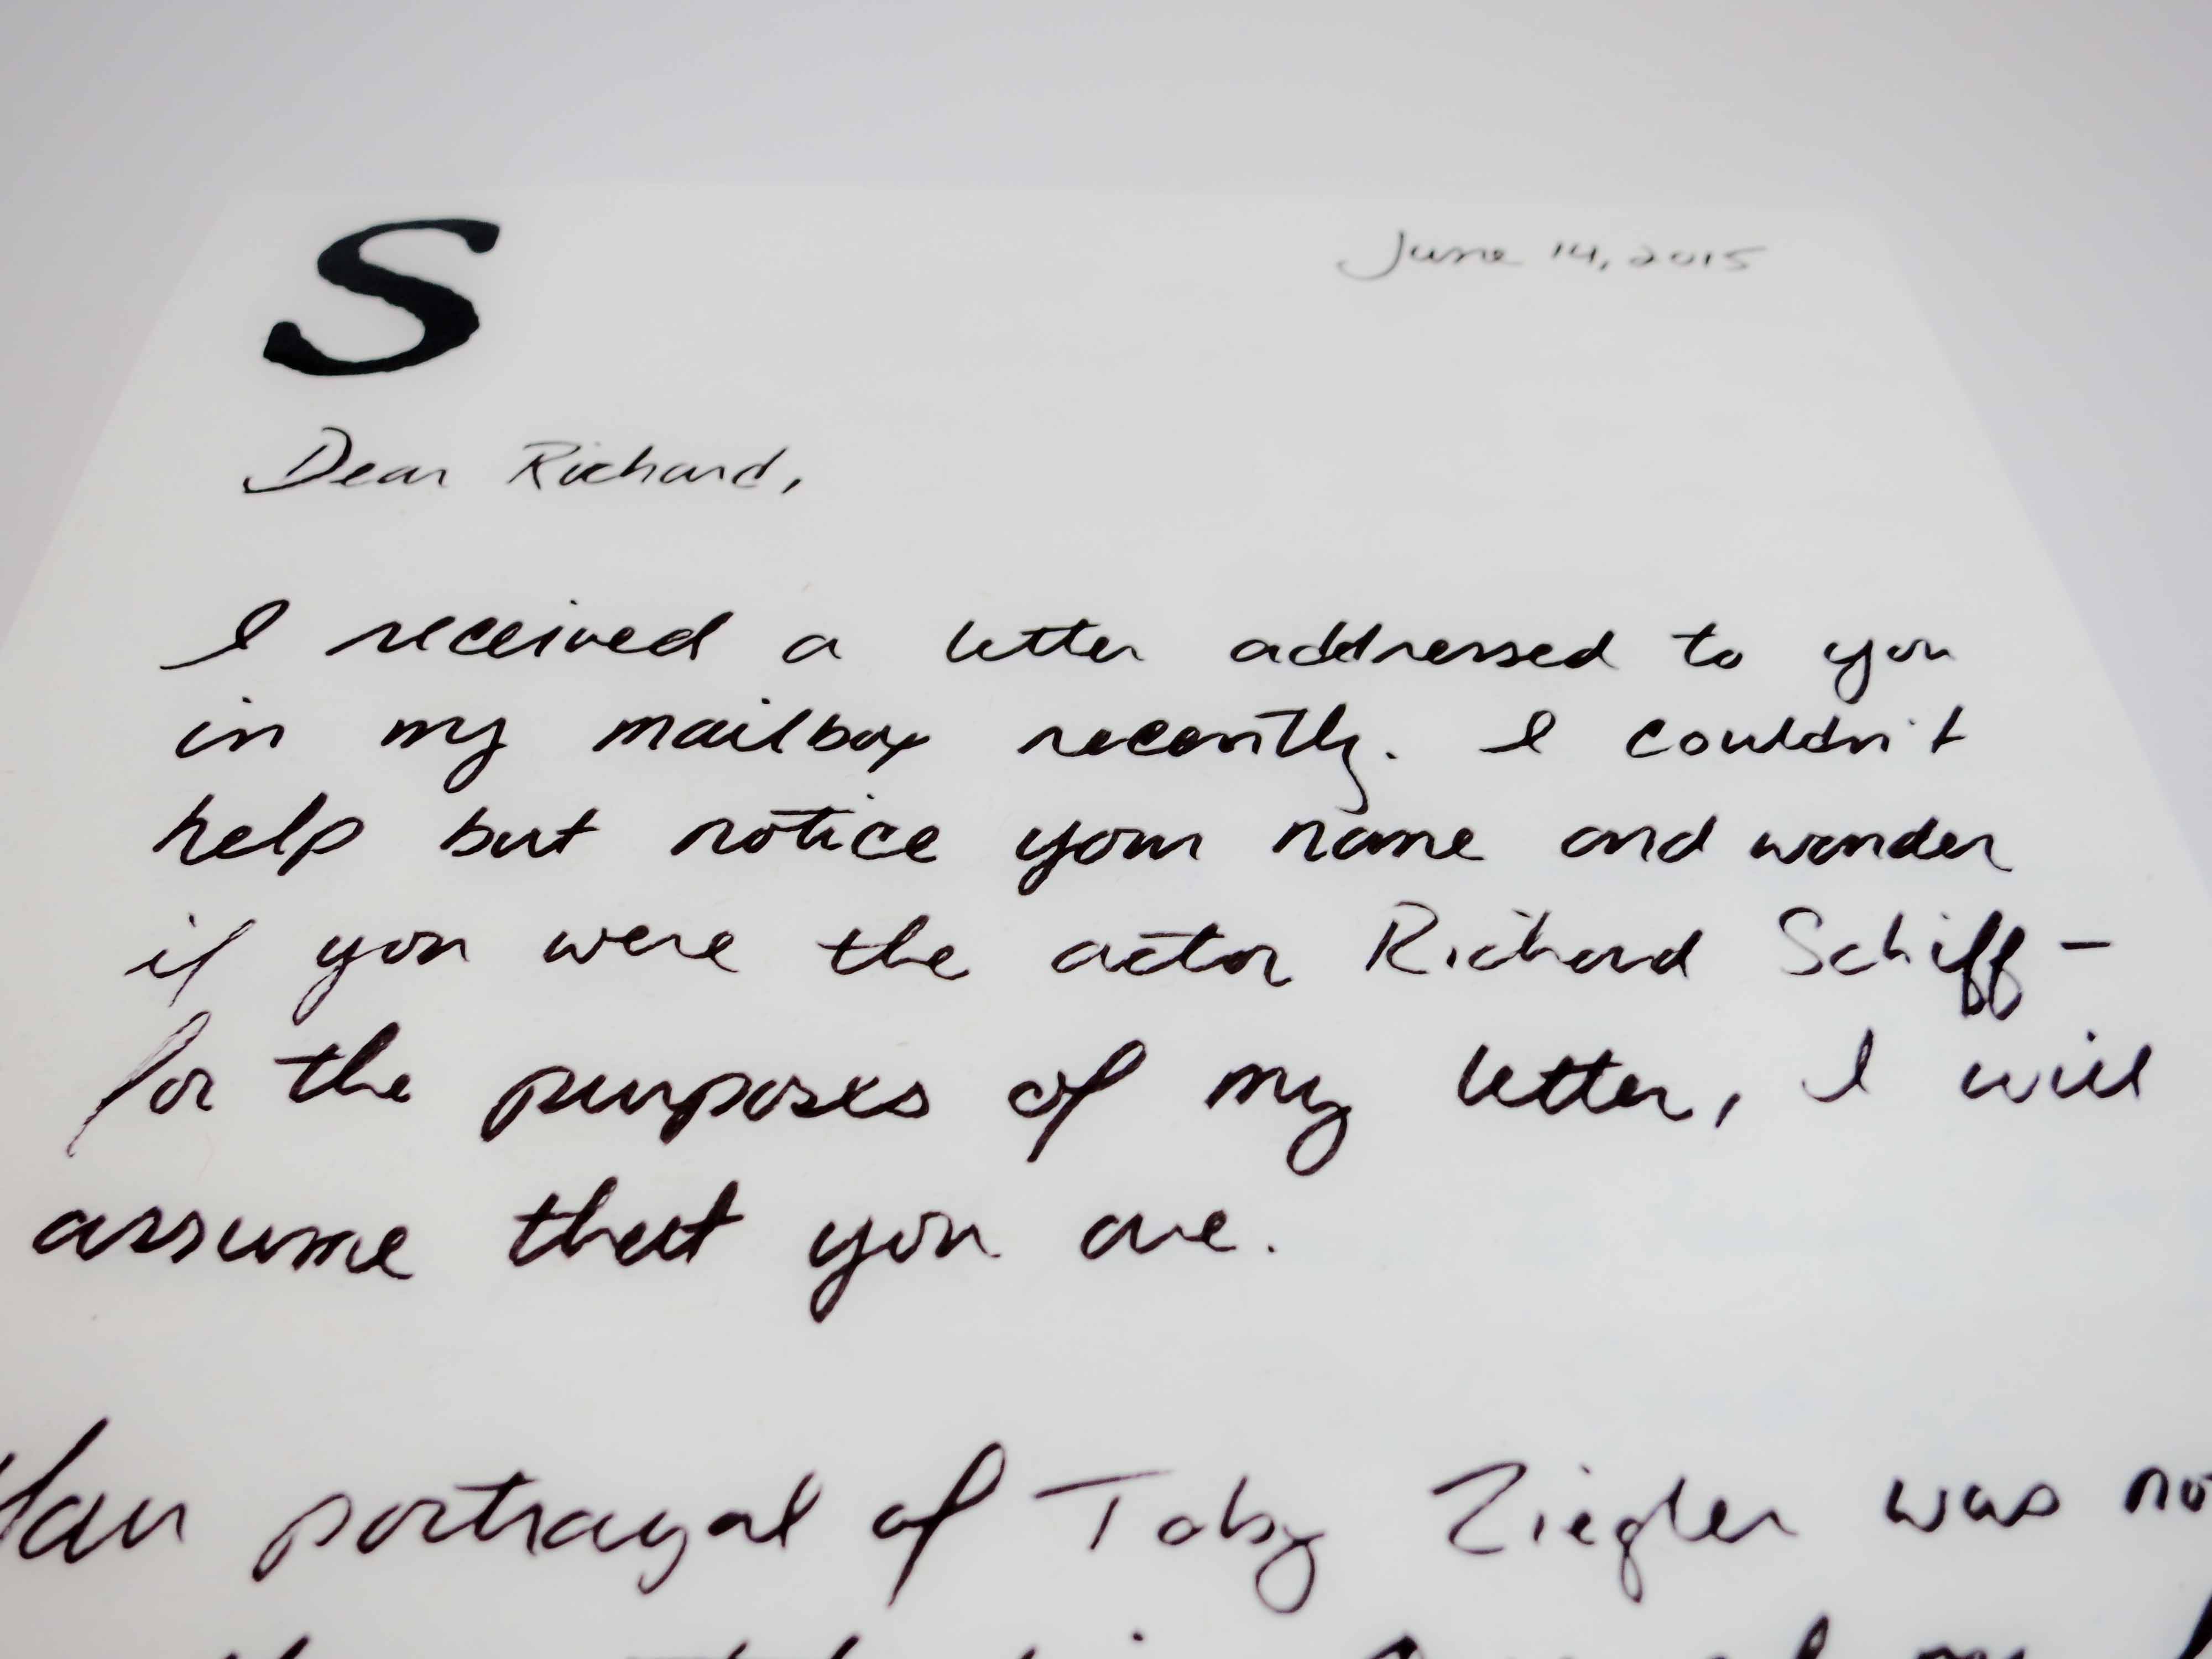 S
June 14, 2015
Dear Richard,
I received a letter addressed to you
in my mailbox recently. I couldn't
help but notice your name and wonder
if you were the actor Richard Schiff –
for the purposes of my letter, I will
assume that you are.
portrayal of Toby Ziegler was